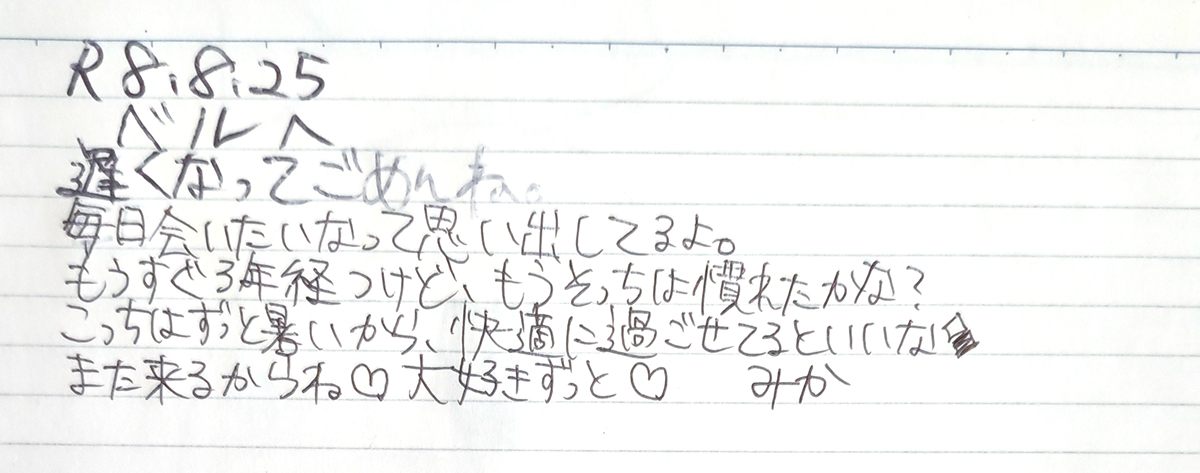 R8.8.25
ベルへ
遅くなってごめんね。
毎日会いたいなって思い出してるよ。
もうすぐ3年経つけど、もうそっちは慣れたかな?
こっちはずっと暑いから、快適に過ごせてるといいな
また来るからね♡大好きずっと♡ みか